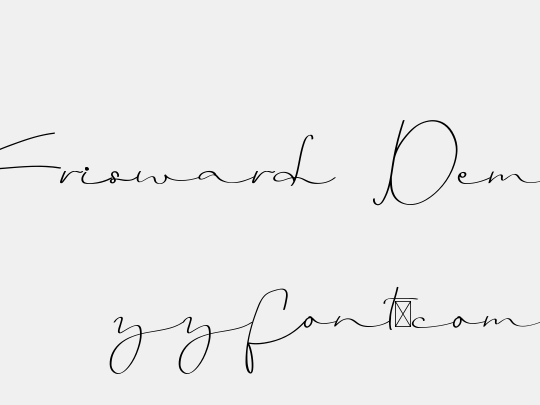 Frisward Dem
yyfont☒com